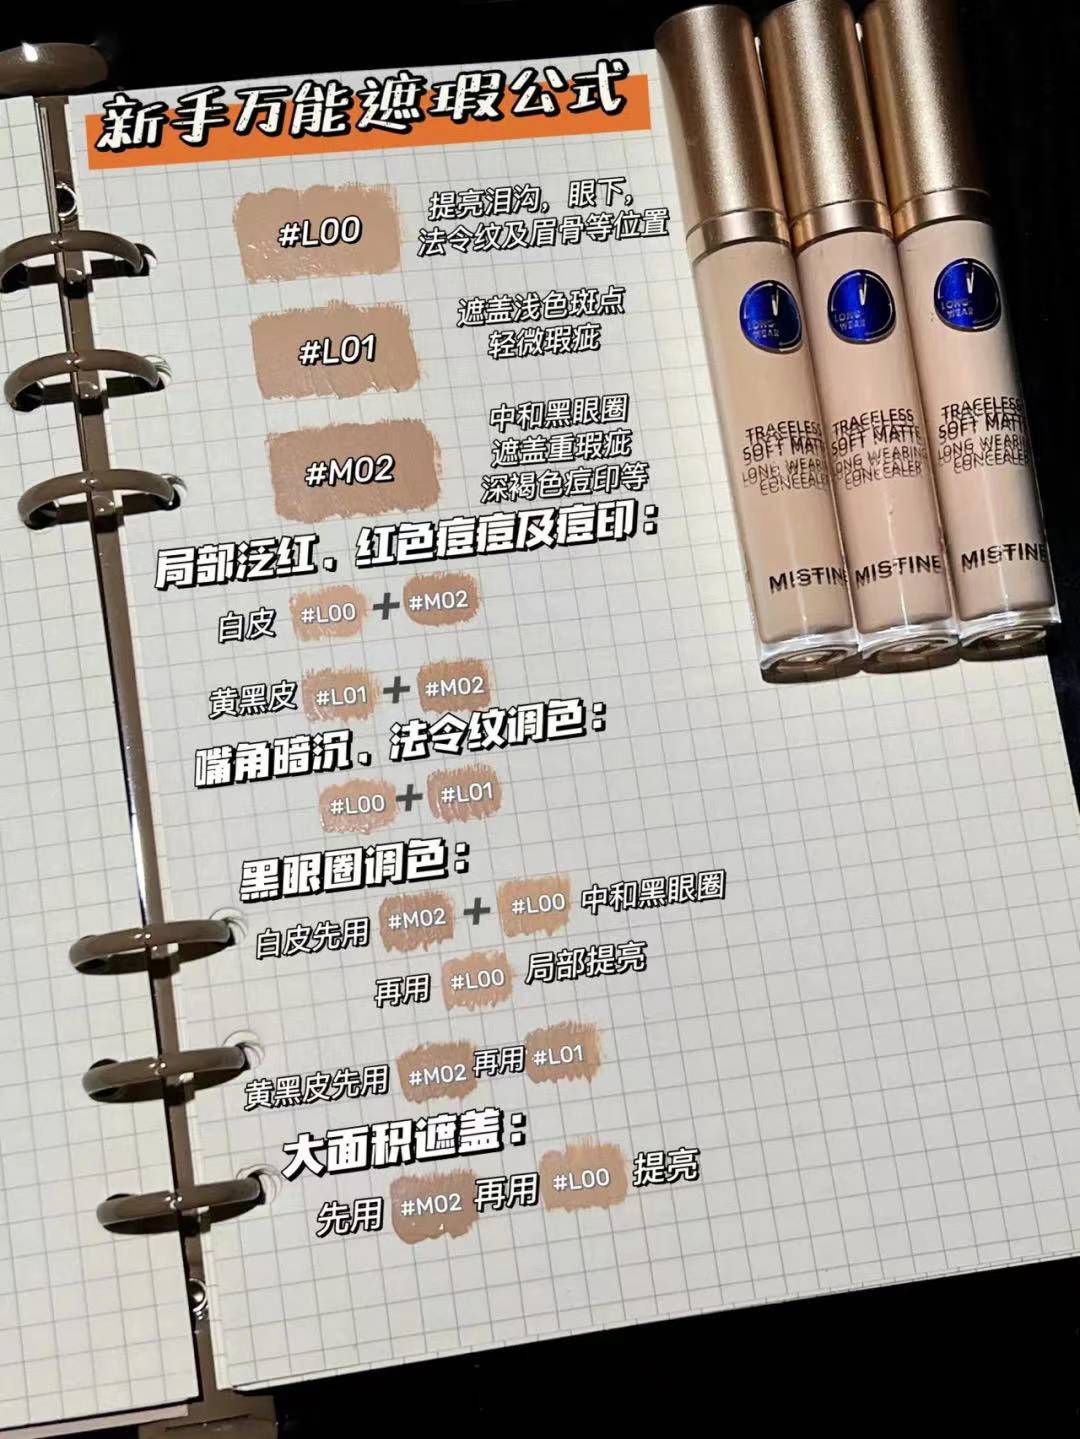 新手万能遮瑕公式
#L00
提亮泪沟，眼下，
法令纹及眉骨等位置
#L01
遮盖浅色斑点
轻微瑕疵
#M02
中和黑眼圈
遮盖重瑕疵
深褐色痘印等
局部泛红、红色痘痘及痘印：
白皮 #L00 + #M02
黄黑皮 #L01 + #M02
嘴角暗沉、法令纹调色：
#L00 + #L01
黑眼圈调色：
白皮先用 #M02 + #L00 中和黑眼圈
再用 #L00 局部提亮
黄黑皮先用 #M02 再用 #L01
大面积遮盖：
先用 #M02 再用 #L00 提亮
LONG
WEAR
TRACELESS
SOFT MATTE
LONG WEARING
CONCEALER
MISTINE
LONG
WEAR
TRACELESS
SOFT MATTE
LONG WEARING
CONCEALER
MISTINE
LONG
WEAR
TRACELESS
SOFT MATTE
LONG WEARING
CONCEALER
MISTINE